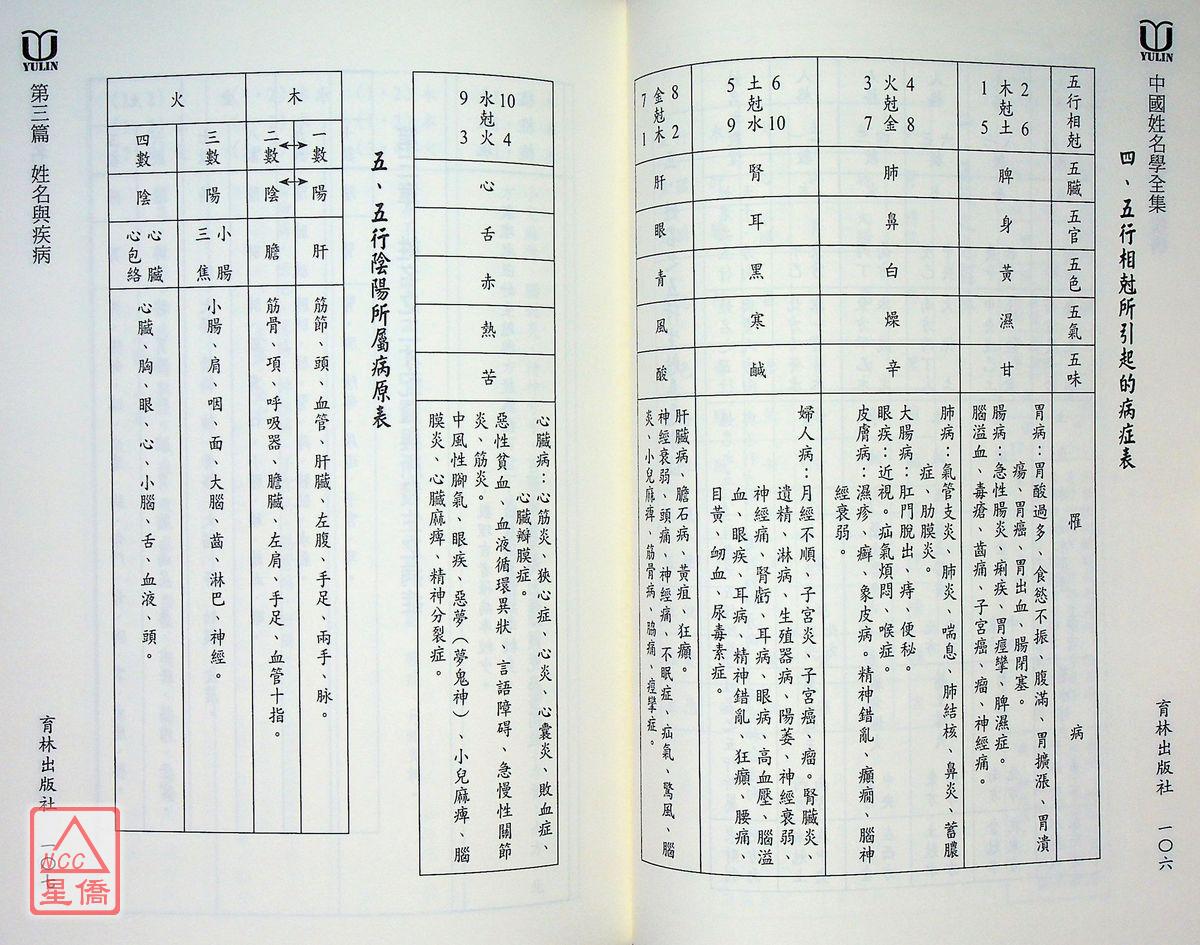 YULIN
中國姓名學全集
育林出版社
一〇六
四、五行相尅所引起的病症表
五行相尅
五臟
五官
五色
五氣
五味
罹病
2 6
木尅土
1 5
脾
身
黃
濕
甘
胃病：胃酸過多、食慾不振、腹滿、胃擴漲、胃潰
瘍、胃癌、胃出血、腸閉塞。
腸病：急性腸炎、痢疾、胃痙攣、脾濕症。
腦溢血、毒瘡、齒痛、子宮癌、瘤、神經痛。
4 8
火尅金
3 7
肺
鼻
白
燥
辛
肺病：氣管支炎、肺炎、喘息、肺結核、鼻炎、蓄膿
症、肋膜炎。
大腸病：肛門脫出、痔、便秘。
眼疾：近視。疝氣煩悶、喉症。
皮膚病：濕疹、癬、象皮病。精神錯亂、癲癇、腦神
經衰弱。
6 10
土尅水
5 9
腎
耳
黑
寒
鹹
婦人病：月經不順、子宮炎、子宮癌、瘤。腎臟炎、
遺精、淋病、生殖器病、陽萎、神經衰弱、
神經痛、腎虧、耳病、眼病、高血壓、腦溢
血、眼疾、耳病、精神錯亂、狂癲、腰痛
目黃、衂血、尿毒素症。
8 2
金尅木
7 1
肝
眼
青
風
酸
肝臟病、膽石病、黃疸、狂癲。
神經衰弱、頭痛、神經痛、不眠症、疝氣、驚風、腦
炎、小兒麻痺、筋骨病、脇痛、痙攣症。
10 4
水尅火
9 3
心
舌
赤
熱
苦
心臟病：心筋炎、狹心症、心炎、心囊炎、敗血症、
心臟瓣膜症。
惡性貧血、血液循環異狀、言語障碍、急慢性關節
炎、筋炎。
中風性腳氣、眼疾、惡夢（夢鬼神）、小兒麻痺、腦
膜炎、心臟麻痺、精神分裂症。
五、五行陰陽所屬病原表
木
一數
陽
肝
筋節、頭、血管、肝臟、左腹、手足、兩手、脈。
二數
陰
膽
筋骨、項、呼吸器、膽臟、左肩、手足、血管十指。
火
三數
陽
小腸
三焦
小腸、肩、咽、面、大腦、齒、淋巴、神經。
四數
陰
心臟
心包絡
心臟、胸、眼、心、小腦、舌、血液、頭。
YULIN
第三篇 姓名與疾病
育林出版社
一〇七
NCC
星僑